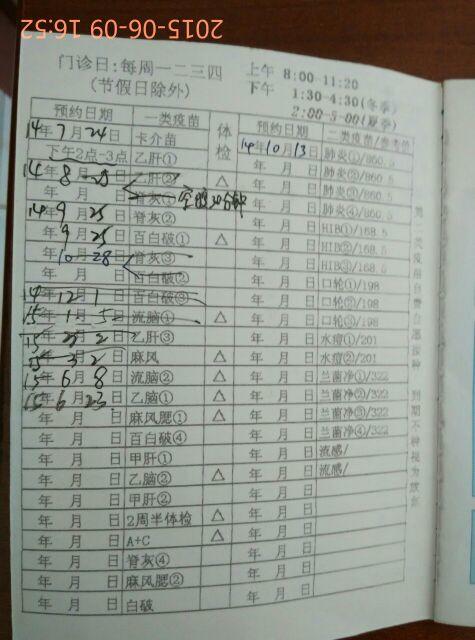 2015-06-09 16:52
门诊日:每周一二三四 上午 8:00-11:20
(节假日除外) 下午 1:30-4:30(冬季)
2:00-5:00(夏季)
预约日期 一类疫苗 体检 预约日期 二类疫苗/参考价
14年7月24日 卡介苗 14年10月13日 肺炎①/860.5
下午2点-3点 乙肝① 年 月 日 肺炎②/860.5
14年8月25日 乙肝② △ 年 月 日 肺炎③/860.5
年 月 日 脊灰① 年 月 日 肺炎④/860.5
14年9月25日 脊灰② 年 月 日 HIB①/168.5
年9月25日 百白破① △ 年 月 日 HIB②/168.5
年10月28日 脊灰③ 年 月 日 HIB③/168.5
年 月 日 百白破② 年 月 日 口轮①/198
14年12月1日 百白破③ 年 月 日 口轮②/198
15年1月5日 流脑① △ 年 月 日 口轮③/198
15年3月2日 乙肝③ 年 月 日 水痘①/201
15年3月2日 麻风 △ 年 月 日 水痘②/201
15年6月8日 流脑② △ 年 月 日 兰菌净①/322
15年6月23日 乙脑① △ 年 月 日 兰菌净②/322
年 月 日 麻风腮① △ 年 月 日 兰菌净③/322
年 月 日 百白破④ 年 月 日 兰菌净④/322
年 月 日 甲肝① 年 月 日 流感/
年 月 日 乙脑② △ 年 月 日 流感/
年 月 日 甲肝② 年 月 日
年 月 日 2周半体检 △ 年 月 日
年 月 日 A+C △ 年 月 日
年 月 日 脊灰④ 年 月 日
年 月 日 麻风腮② 年 月 日
年 月 日 白破 年 月 日
第二类疫苗自费自愿接种 到期不种视为放弃